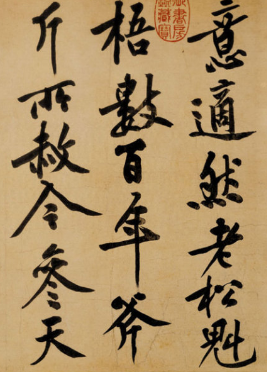 意適然老松魁
梧數百年斧
斤所赦今參天